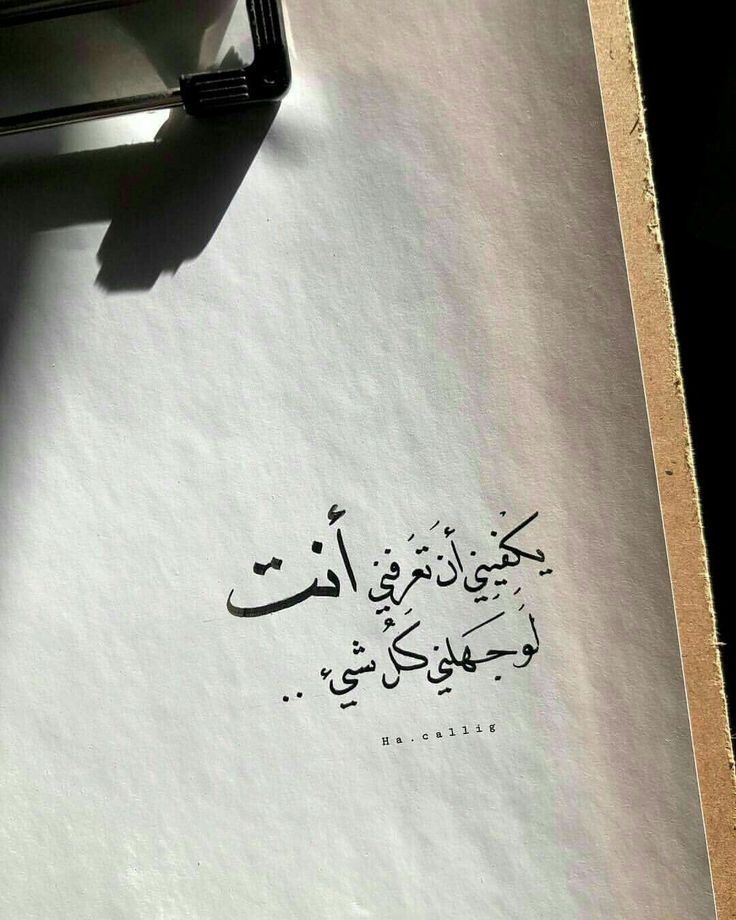 يَكْفِيِنِي أَن تَعَرفَني أنت
لَو جَهَلِني كُلُ شيء ..
Ha.callig